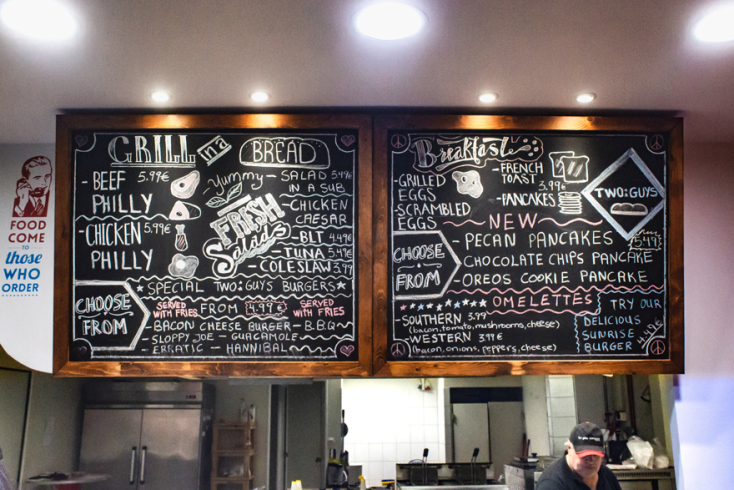 FOOD
COME
TO
those
WHO
ORDER
GRILL in a BREAD
- BEEF 5.99€
PHILLY
- CHICKEN 5.99€
PHILLY
Yummy
FRESH
Salads
- SALAD 5.49€
IN A SUB
- CHICKEN
CAESAR
- BLT 4.49€
- TUNA 5.49€
- COLESLAW 3.99
★ SPECIAL TWO:GUYS BURGERS ★
CHOOSE
FROM
SERVED WITH FRIES FROM 4.99€ SERVED WITH FRIES
- BACON CHEESE BURGER - B.B.Q
- SLOPPY JOE - GUACAMOLE
- ERRATIC - HANNIBAL
Breakfast
- GRILLED
EGGS
- SCRAMBLED
EGGS
- FRENCH
TOAST
3.99€
- PANCAKES
TWO:GUYS
NEW
CHOOSE
FROM
- PECAN PANCAKES
5.49
- CHOCOLATE CHIPS PANCAKE
- OREOS COOKIE PANCAKE
OMELETTES
SOUTHERN 3.99
(bacon, tomato, mushrooms, cheese)
WESTERN 3.99€
(bacon, onions, peppers, cheese)
TRY OUR
DELICIOUS
SUNRISE
BURGER